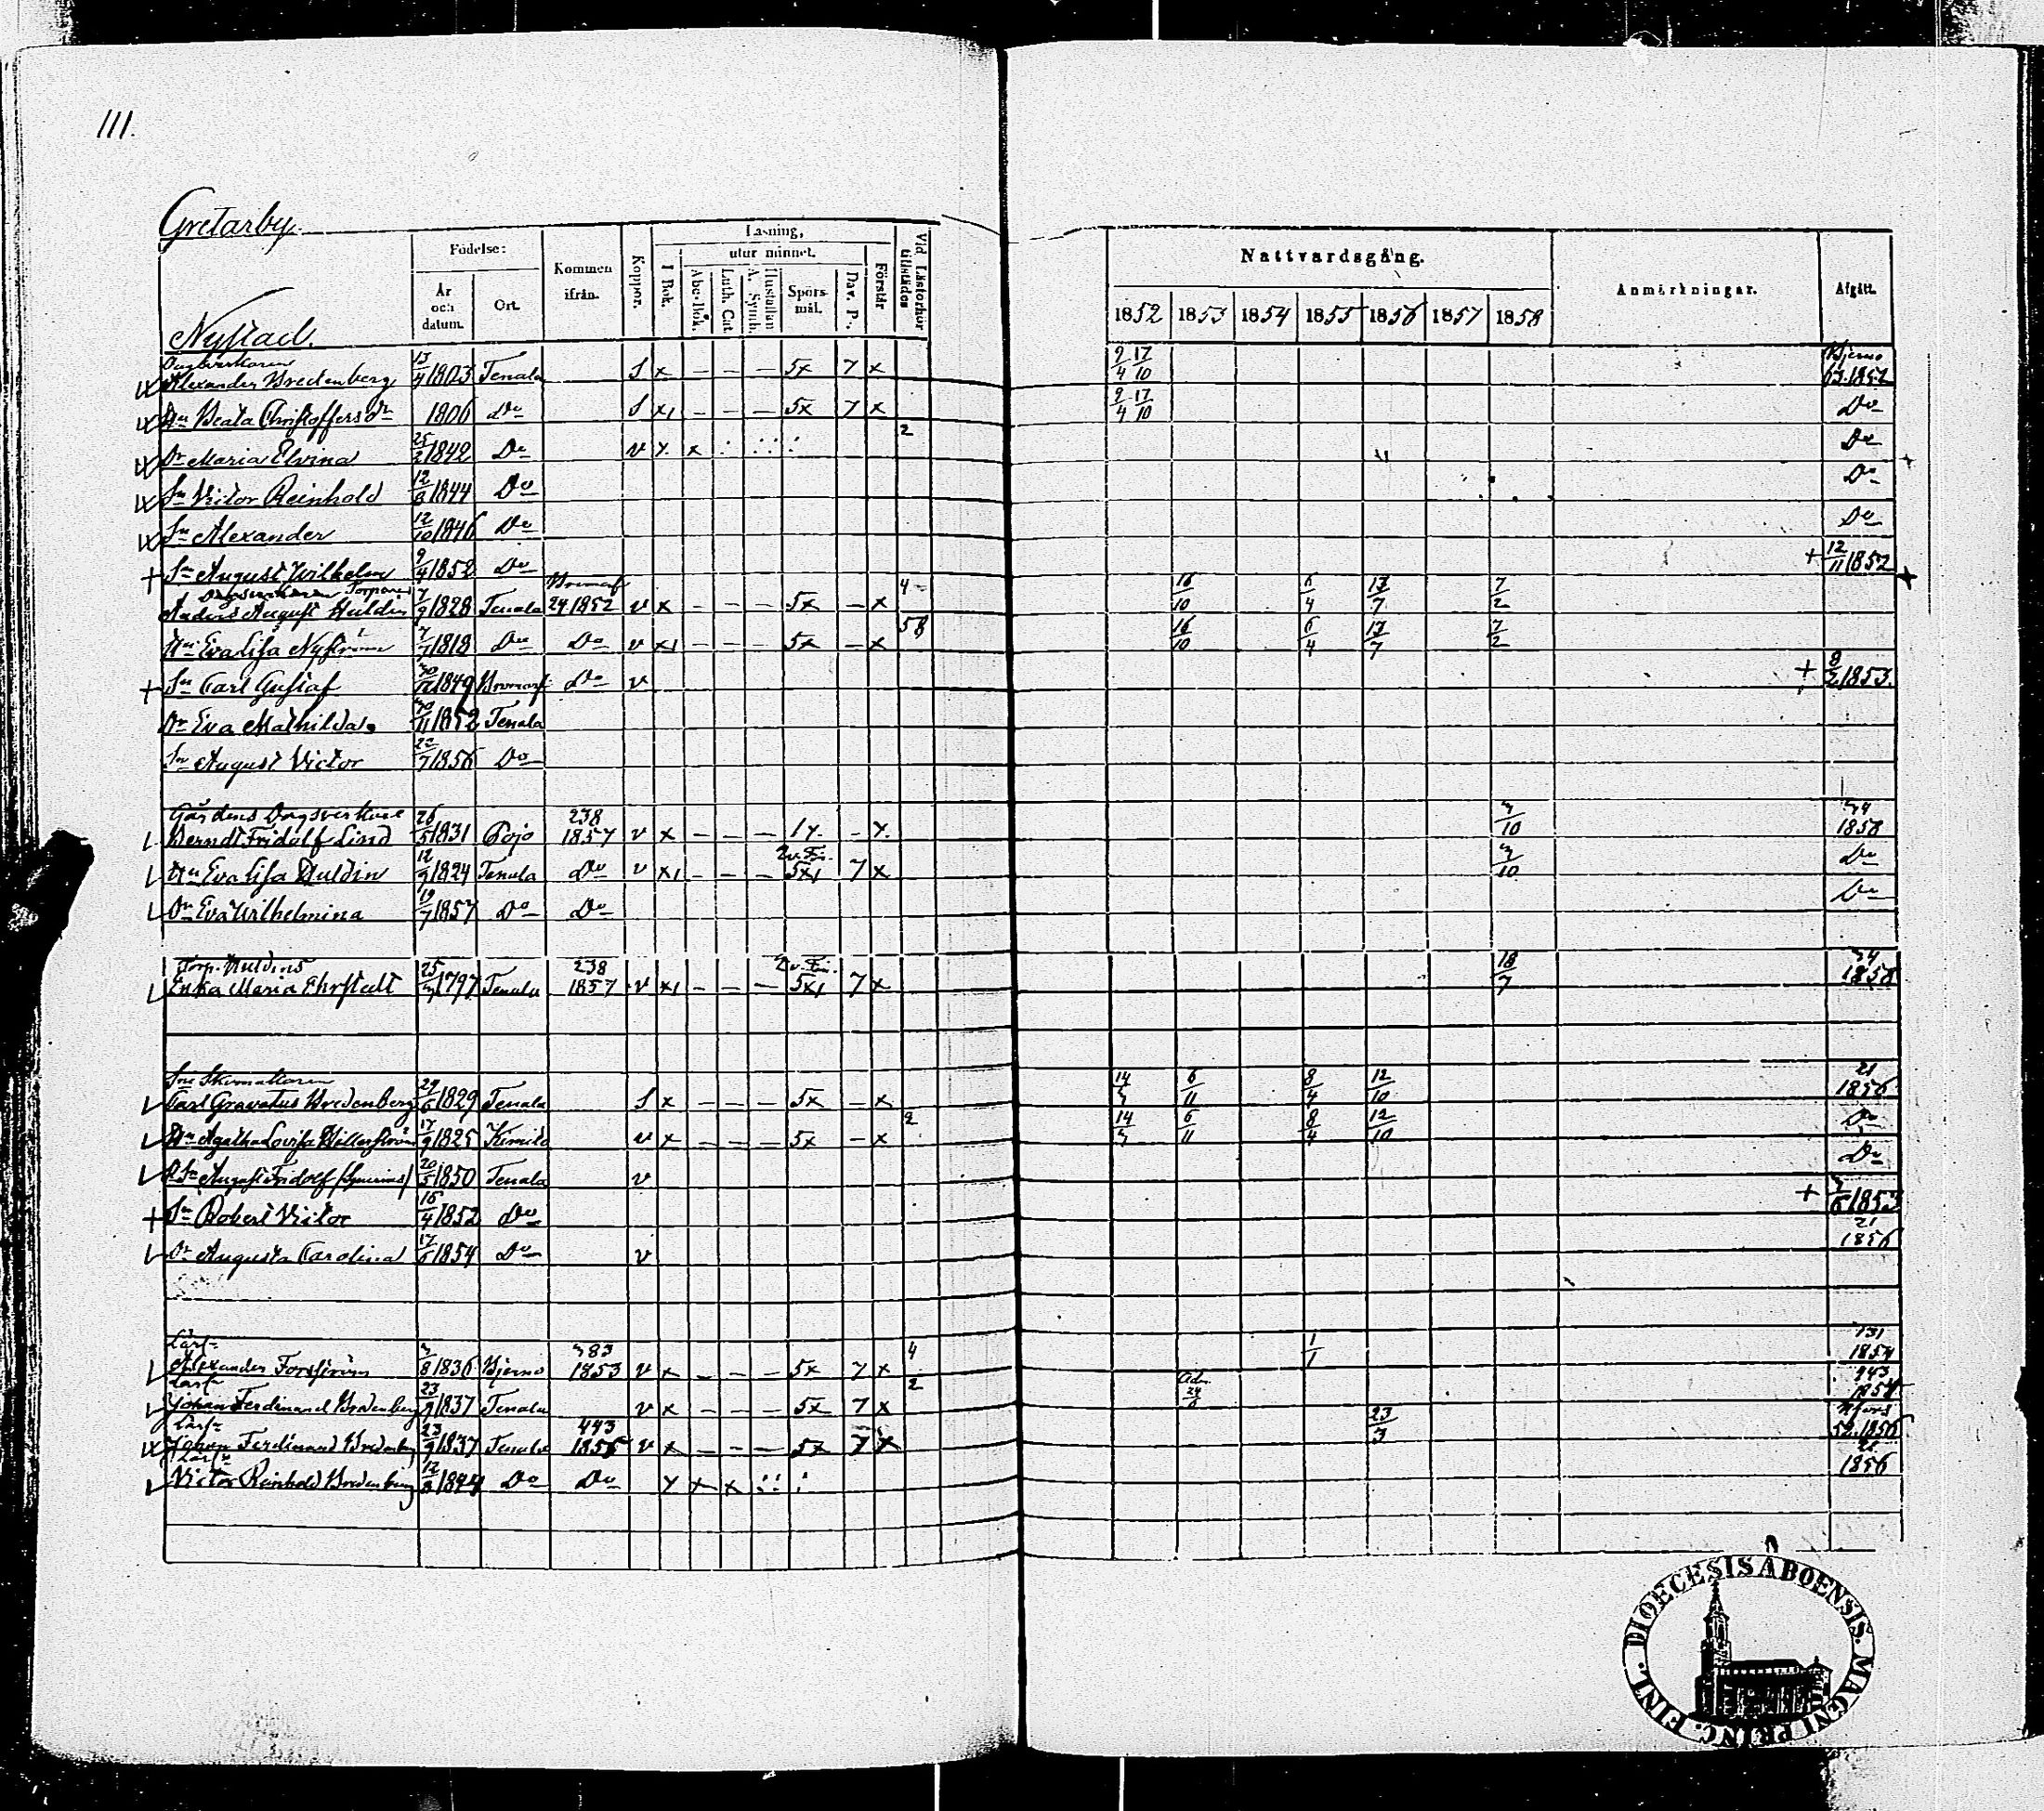 111.
Gretarby.
Nystad.
Födelse: År och datum. Ort. Kommen ifrån. Koppor. Läsning, I Bok. utur minnet. Abc-Bok. Luth. Cat. Hustaflan A. Symb. Spörsmål. Dav. P. Förstår Vid Läsförhör tillstädes
Nattvardsgång. Anmärkningar. Afgått.
1852 1853 1854 1855 1856 1857 1858
Dagsverkaren
Alexander Bredenberg 13/4 1803 Tenala S x – – – 5x 7 x 9/4 17/10 Bjerno 63.1852
Hu Beata Christoffersdr 1806 Do S x1 – – – 5x 7 x 9/4 17/10 Do
2
Dr Maria Elvina 25/2 1842 Do v x Do
Sn Victor Reinhold 12/8 1844 Do Do
Sn Alexander 12/10 1846 Do Do
+ Sn August Wilhelm 9/4 1852 Do + 12/11 1852
Dagsverkaren Torparen Bromarf 4
Anders August Huldin 7/9 1828 Tenala 24.1852 v x – – – 5x – x 16/10 6/4 13/7 7/2
58
Hu Eva Lisa Nyström 7/7 1818 Do Do v x1 – – – 5x – x 16/10 6/4 13/7 7/2
+ Sn Carl Gustaf 1849 Bromarf Do v + 8/2 1853.
Dr Eva Mathilda 30/11 1852 Tenala
Sn August Victor 22/7 1856 Do
Gårdens Dagsverkare 238 34
Berndt Fridolf Lind 26/5 1831 Pojo 1857 v x – – – 1x – x 3/10 1858
Hu Eva Lisa Huldin 12/9 1824 Tenala Do v x1 – – – 5x1 7 x 3/10 Do
Dr Eva Wilhelmina 19/7 1857 Do Do Do
Torp. Huldins 238 34
Erika Maria Ehrstedt 25/3 1797 Tenala 1857 v x1 – – – 5x1 7 x 18/7 1858
Sne Skomakaren 21
Carl Gravatus Bredenberg 29/6 1829 Tenala S x – – – 5x – x 14/3 6/11 8/4 12/10 1856
2
Hu Agatha Lovisa 17/9 1825 Kimito v x – – – 5x – x 14/3 6/11 8/4 12/10 Do
Sn August Fridolf 20/5 1850 Tenala v Do
+ Sn Robert Victor 16/4 1852 Do + 3/6 1853
21
Dr Augusta Carolina 17/6 1854 Do v 1856
Lärl. 383 4 131
Alexander Forsström 3/8 1836 Bjerno 1853 v x – – – 5x 7 x 1/1 1854
Lärl. 2 443
Johan Ferdinand Bredenberg 23/9 1837 Tenala v x – – – 5x 7 x 1854
Lärl. 443
Johan Ferdinand Bredenberg 23/9 1837 Tenala 1856 v x – – – 5x 7 x 23/3 52.1856
Lärl. 21
Victor Reinhold Bredenberg 12/8 1844 Do Do x x x 1856
DIOECESIS ABOENSIS. MAGNI PRINC. FINL.